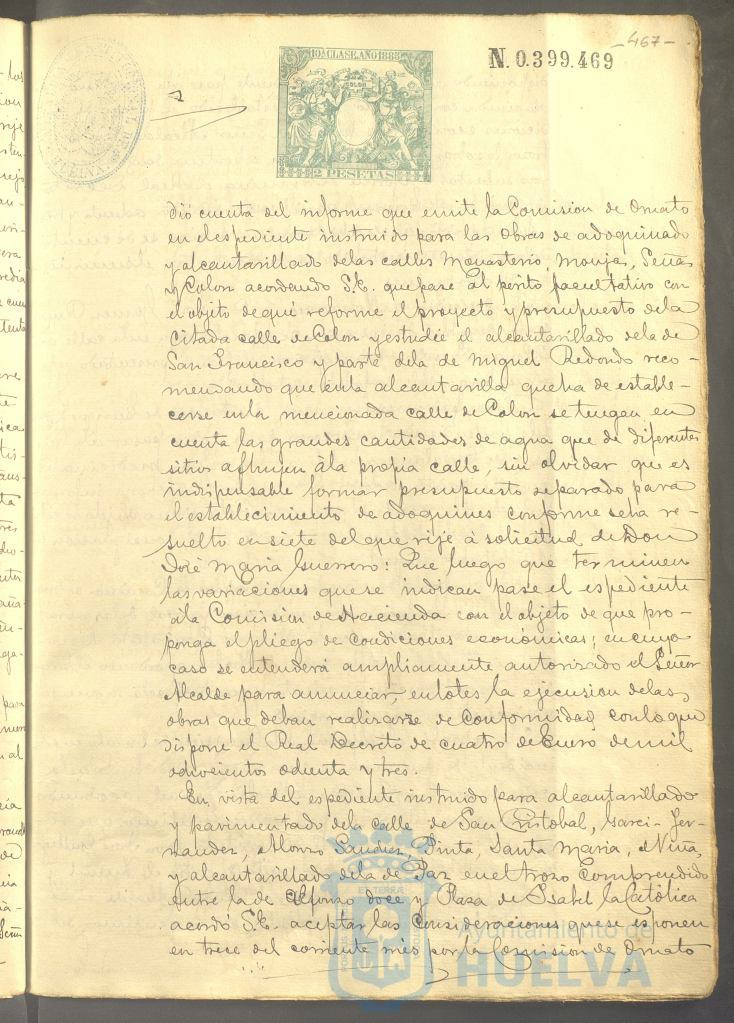 -467-
N.0.399.469
10ª CLASE. AÑO 188
COLON
2 PESETAS
dió cuenta del informe que emite la Comision de Ornato
en el espediente instruido para las obras de adoquinado
y alcantarillado delas calles Monasterio, Monjas, Señas
y Colon acordando S.E. que pase al perito facultativo con
el objeto de qué reforme el proyecto y presupuesto dela
citada calle de Colon y estudie el alcantarillado dela de
San Francisco y parte dela de Miguel Redondo reco-
mendando que enla alcantarilla queha de estable-
cerse enla mencionada calle de Colon se tengan en
cuenta las grandes cantidades de agua que de diferentes
sitios afluyen ála propia calle, sin olvidar que es
indispensable formar presupuesto separado para
el establecimiento de adoquines conforme seha re-
suelto en siete del que rije á solicitud de Don
José Maria Guerrero: Que luego que terminen
las variaciones quese indican pase el espediente
ála Comision de Hacienda con el objeto de que pro-
ponga el pliego de condiciones económicas; en cuyo
caso se entenderá ampliamente autorizado el Señor
Alcalde para anunciar, enlotes la ejecusion delas
obras que deban realizarse de conformidad conlo que
dispone el Real Decreto de cuatro de Enero de mil
ochocientos ochenta y tres.
En vista del espediente instruido para alcantarillado
y pavimentado dela calle de San Cristobal, Garci-Fer-
nandez, Alonzo Sanchez, Pinta, Santa Maria, Niña,
y alcantarillado dela de Paz enel trozo comprendido
entre la de Alfonzo doce y Plaza de Isabel la Católica
acordó S.E. aceptar las consideraciones quese esponen
en trece del corriente mes por la Comision de Ornato
Ayuntamiento de
HUELVA